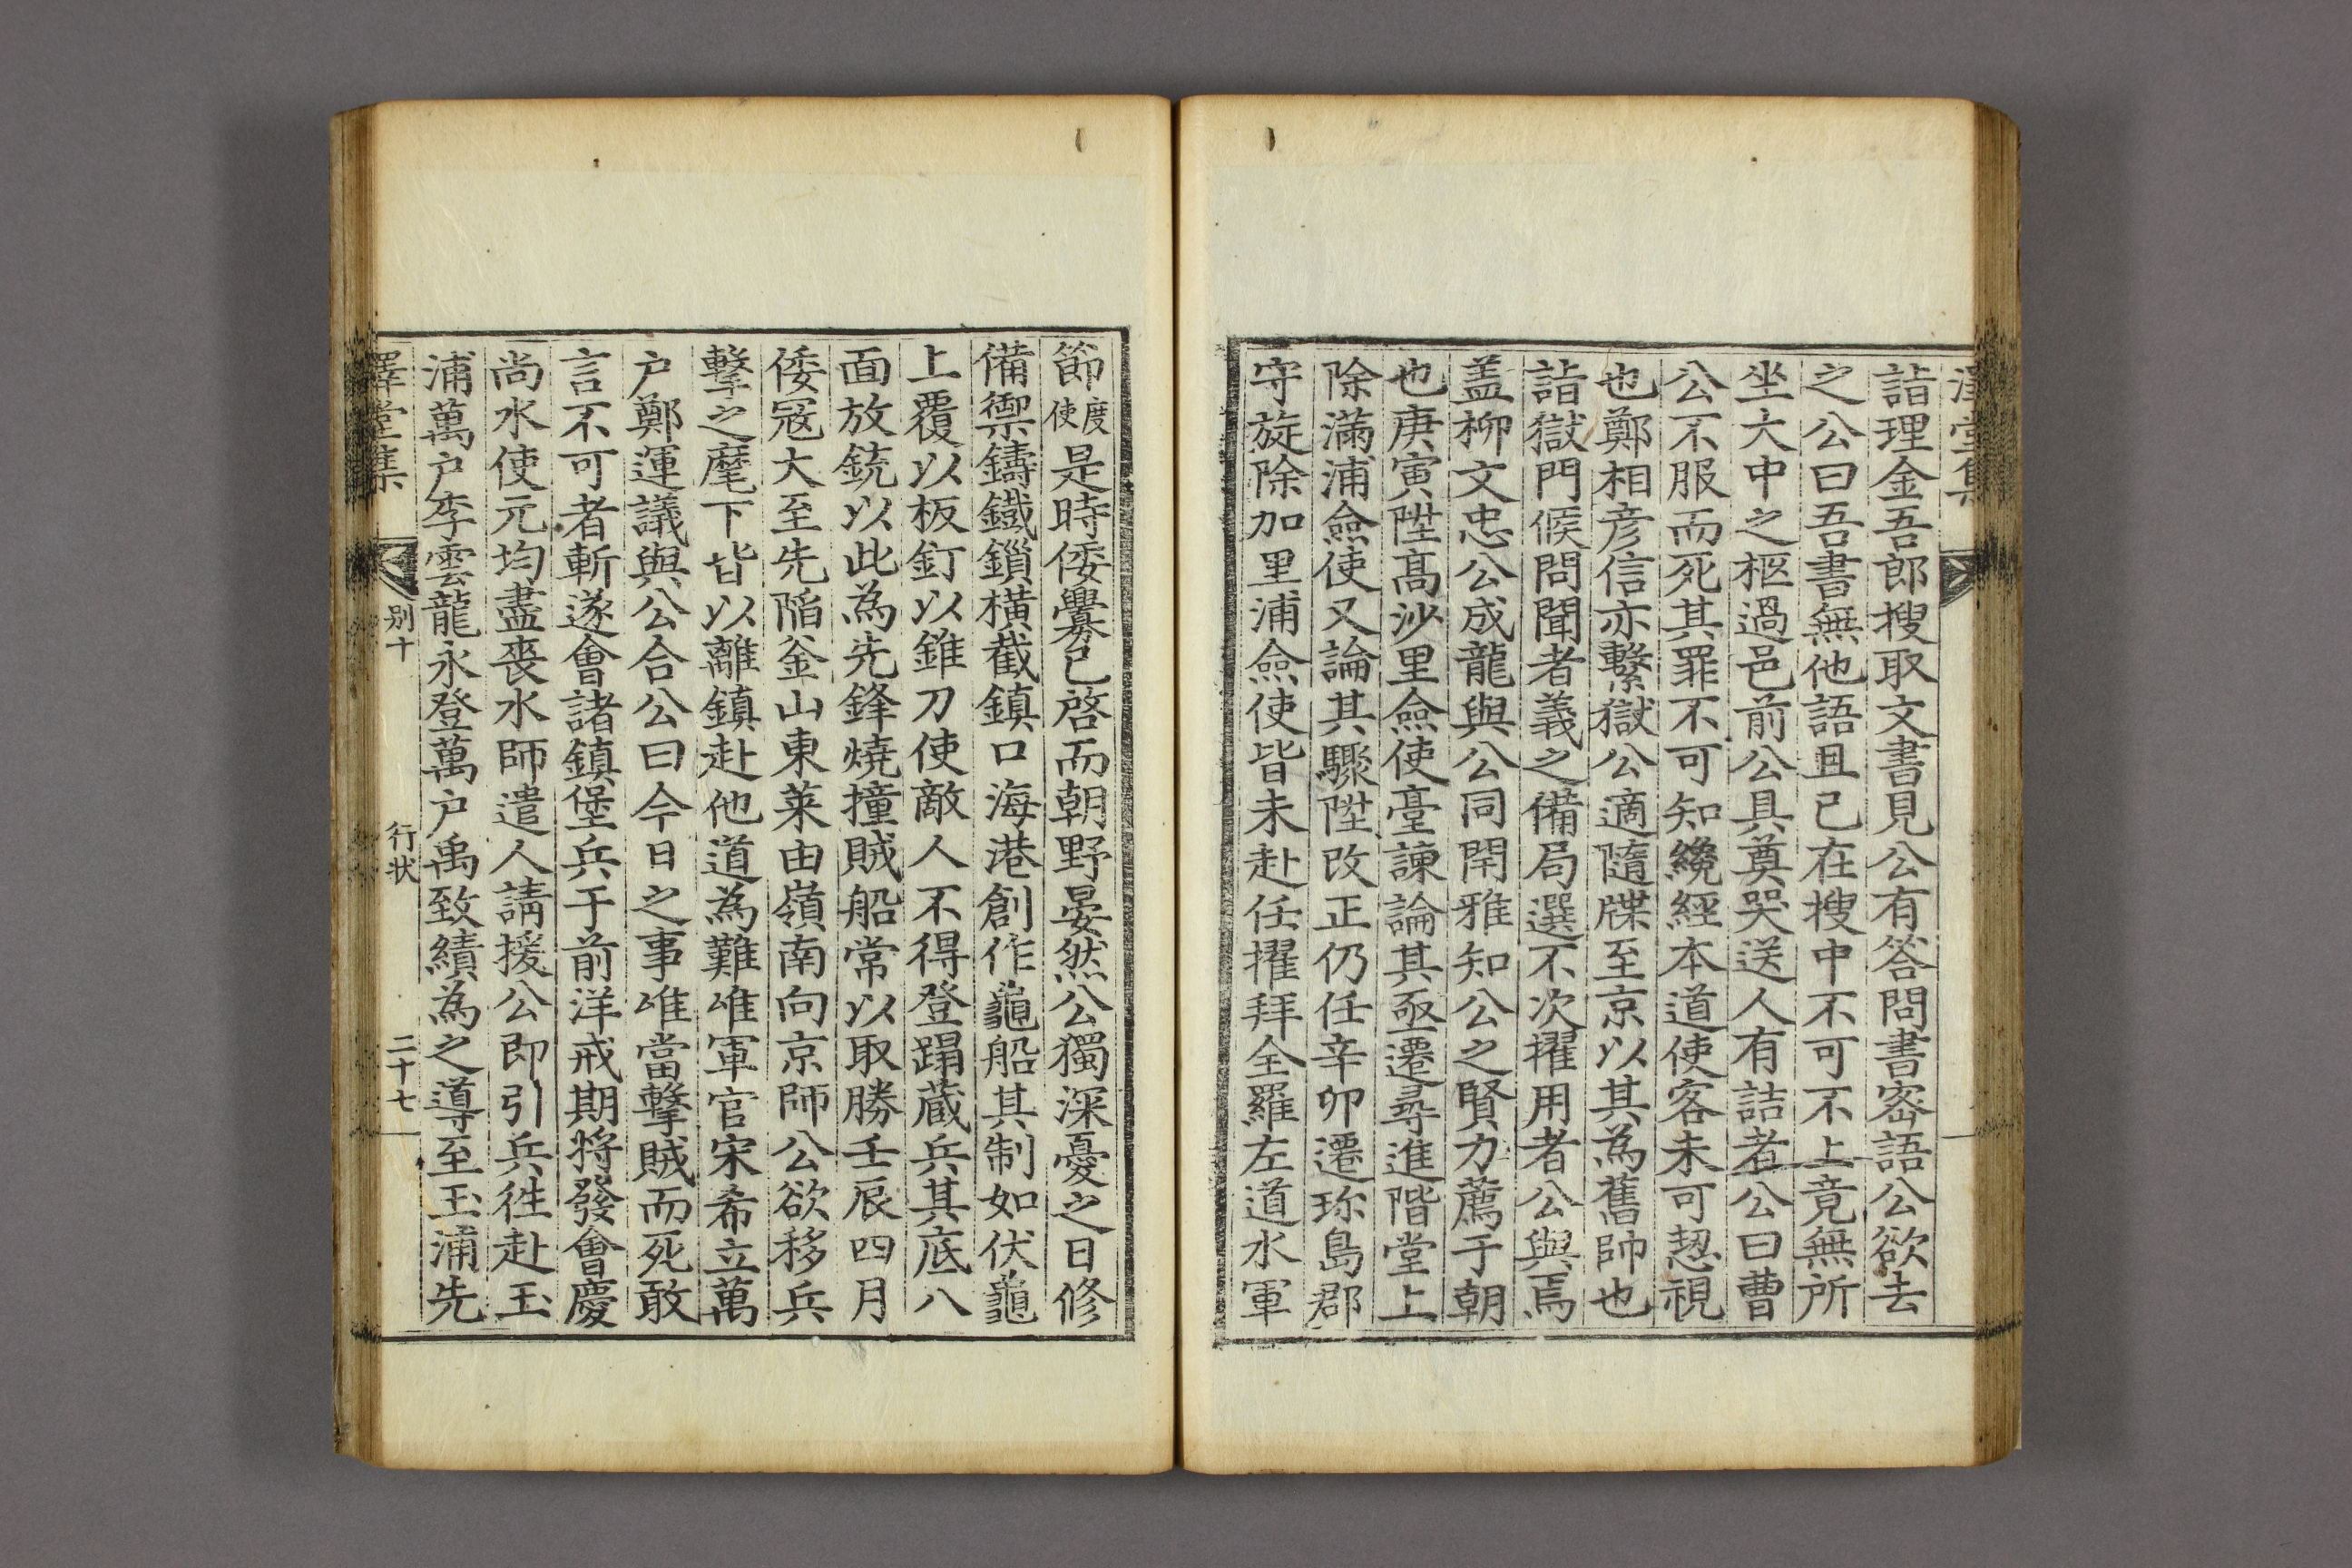 詣理金吾郎搜取文書見公有答問書密語公欲去
之公曰吾書無他語且已在搜中不可不上竟無所
坐大中之柩過邑前公具奠哭送人有詰者公曰曹
公不服而死其罪不可知纔經本道使客未可恝視
也鄭相彦信亦繫獄公適隨牒至京以其為舊帥也
詣獄門候問聞者義之備局選不次擢用者公與焉
盖柳文忠公成龍與公同閈雅知公之賢力薦于朝
也庚寅陞高沙里僉使臺諫論其亟遷尋進階堂上
除滿浦僉使又論其驟陞改正仍任辛卯遷珎島郡
守旋除加里浦僉使皆未赴任擢拜全羅左道水軍
節度使是時倭釁已啓而朝野晏然公獨深憂之日修
備禦鑄鐵鎖橫截鎮口海港創作龜船其制如伏龜
上覆以板釘以錐刀使敵人不得登蹋蔵兵其底八
面放銃以此為先鋒燒撞賊船常以取勝壬辰四月
倭冦大至先陷釜山東萊由嶺南向京師公欲移兵
擊之麾下皆以離鎮赴他道為難唯軍官宋希立萬
户鄭運議與公合公曰今日之事唯當擊賊而死敢
言不可者斬遂會諸鎮堡兵于前洋戒期將發會慶
尚水使元均盡喪水師遣人請援公即引兵徃赴玉
浦萬户李雲龍永登萬户禹致績為之導至玉浦先
澤堂集 别十 行状 二十七